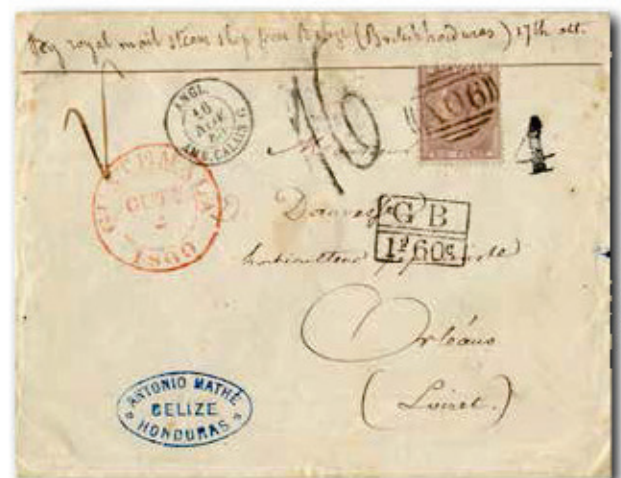 By royal mail steam ship from Belize (British honduras) 17th oct.
ANGL.
16
AMB. CALAIS G
GUATEMALA
OCTE
2
1860
16
A06
4
GB
1F60c
Orléans
(Loiret.)
ANTONIO MATHÉ
BELIZE
HONDURAS